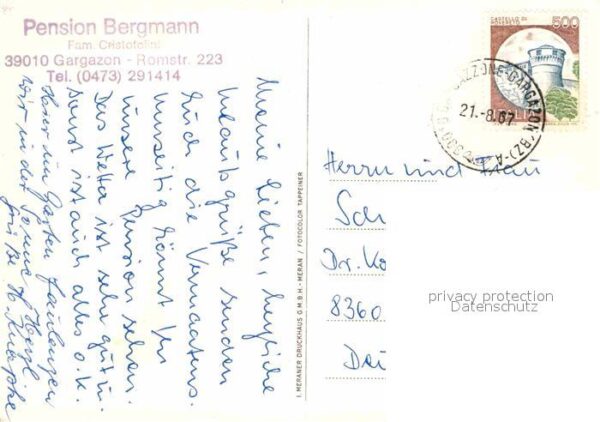 Pension Bergmann
Fam. Cristofolini
39010 Gargazon - Romstr. 223
Tel. (0473) 291414
Meine Lieben, herzliche
Urlaubsgrüße senden
Euch die
Umseitig könnt Ihr
unsere Pension sehen.
Das Wetter ist sehr gut u.
sonst ist auch alles o.k.
Hier im Garten faulenzen
wir in der Sonne. Herzl.
Grüße
I. MERANER DRUCKHAUS G.M.B.H. - MERAN / FOTOCOLOR TAPPEINER
CASTELLO DI
ROVERETO
500
ITALIA
GARGAZZONE-GARGAZON (BZ)
21.-8.87
Herrn und Frau
Sch
Dr. Ko
8360
De
privacy protection
Datenschutz